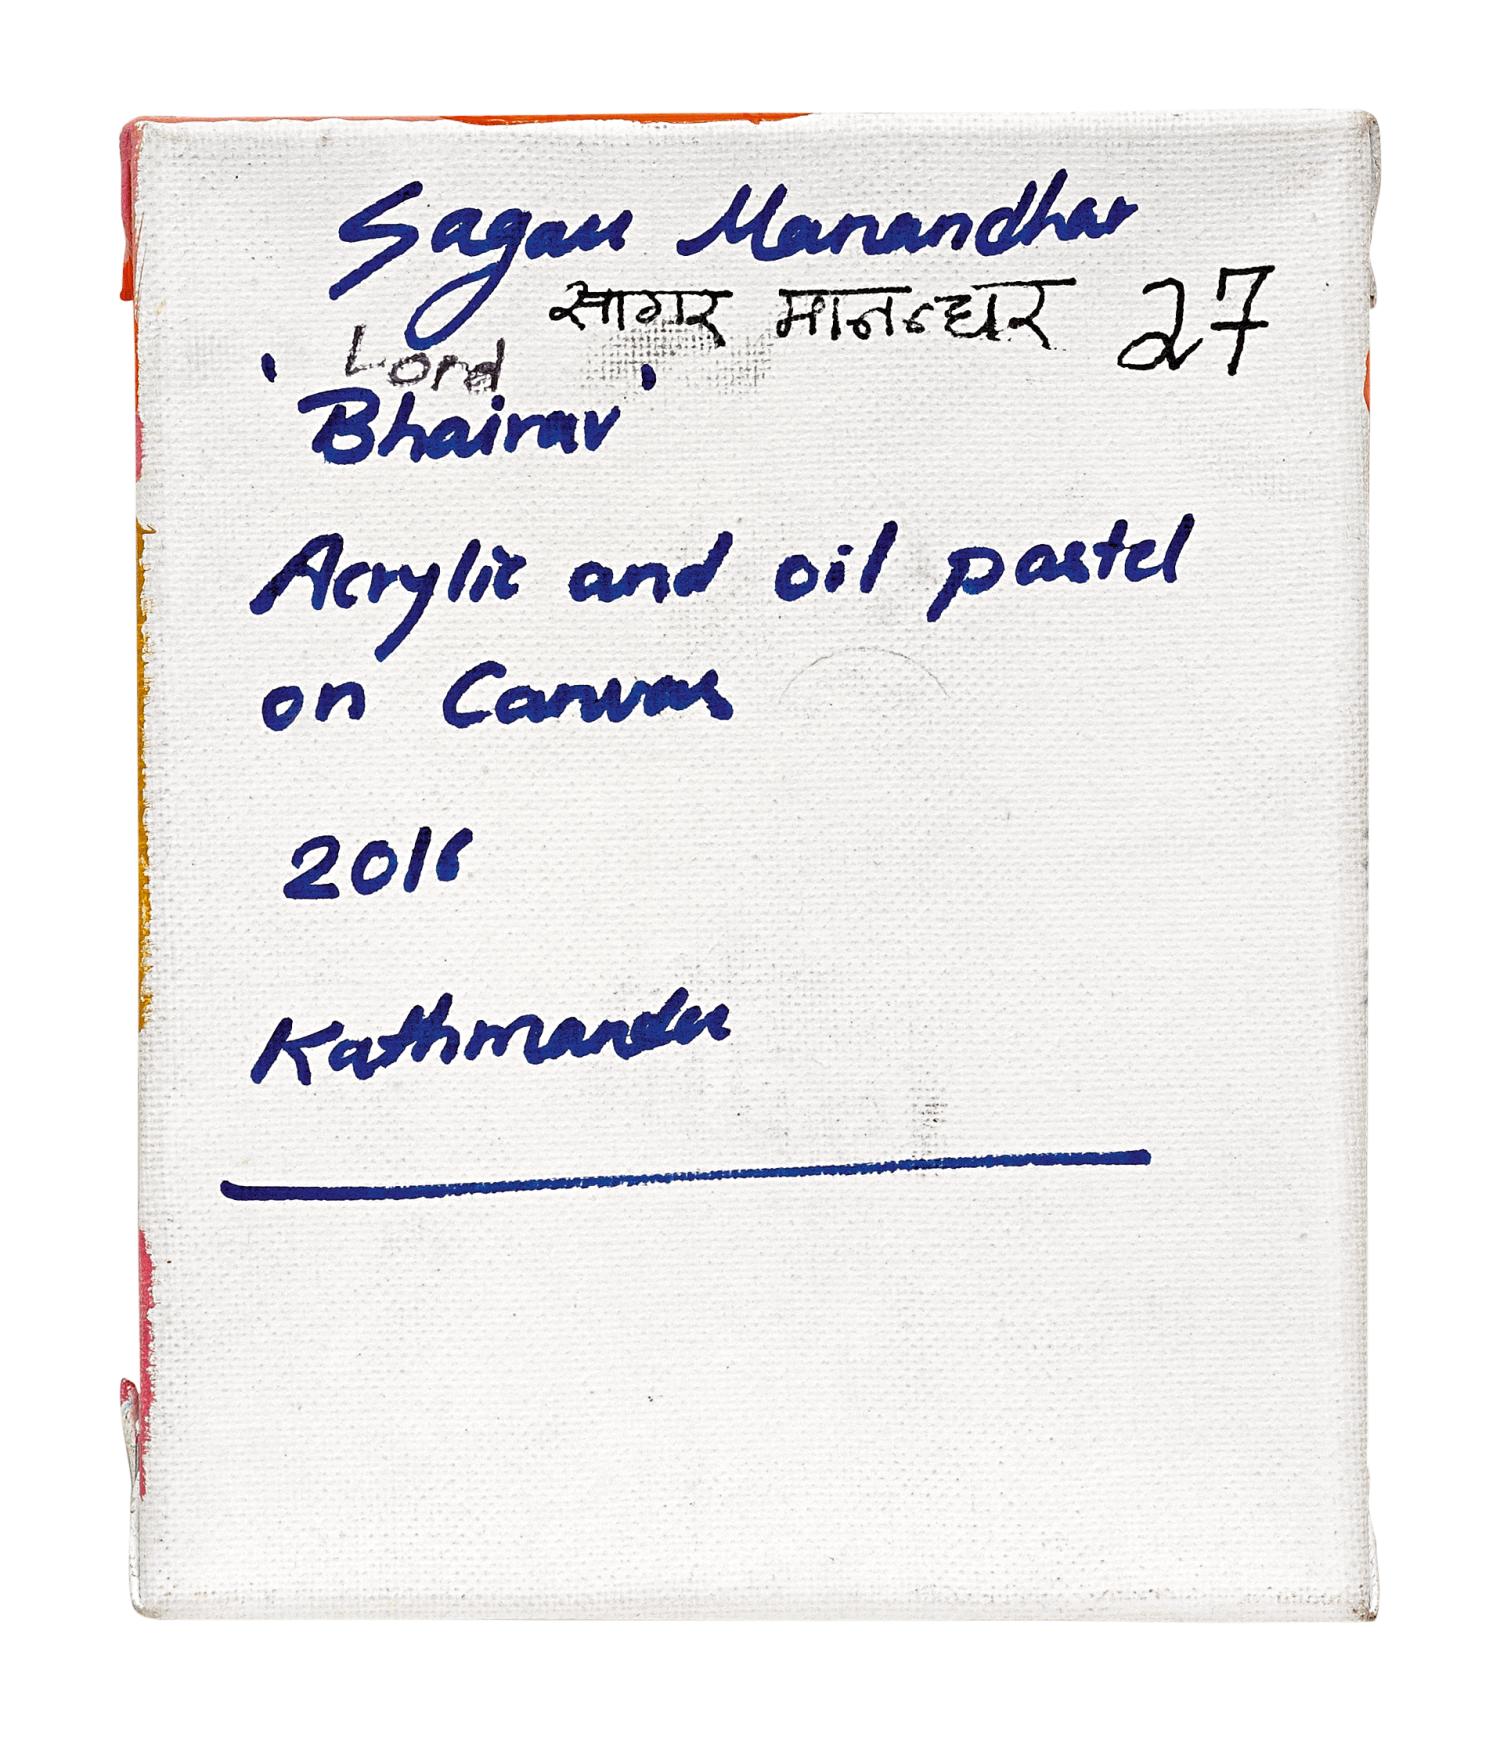 Sagar Manandhar
सागर मानन्धर 27
Lord
'Bhairav'
Acrylic and oil pastel
on Canvas
2016
Kathmandu